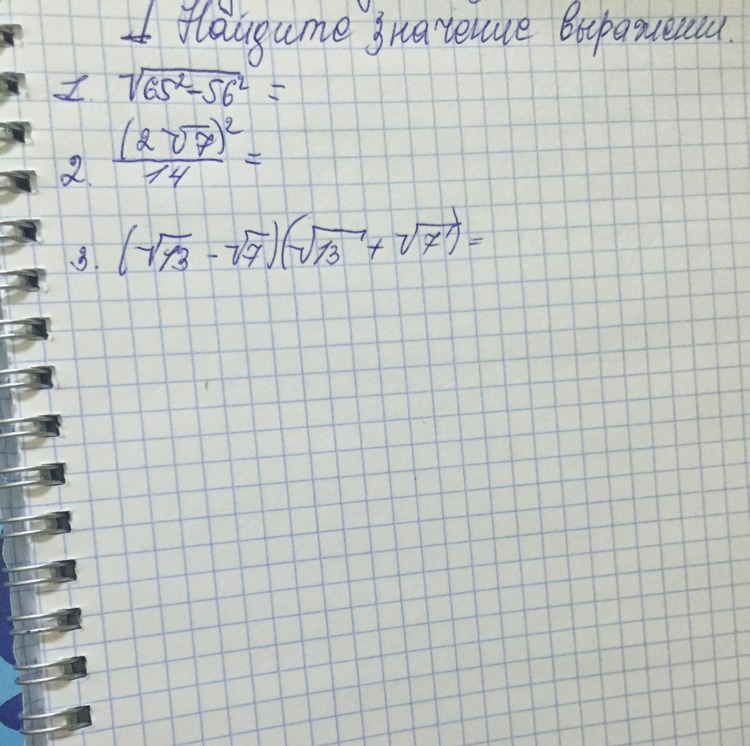 1 Найдите значение выражений.
1. √65²-56² =
2. (2√7)²/14 =
3. (√13 - √7)(√13 + √7) =